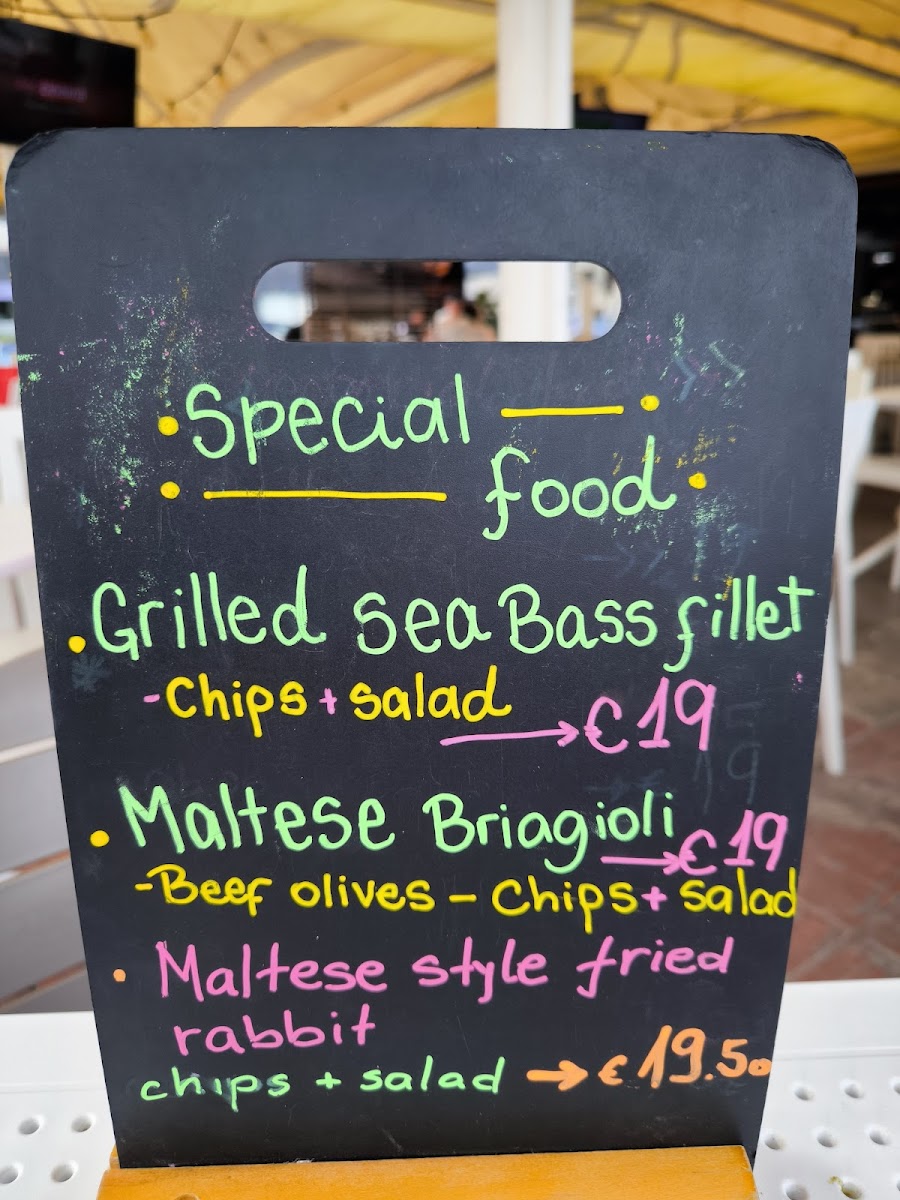 Special
food
Grilled sea Bass fillet
- Chips + salad
→ €19
Maltese Briagioli
→ €19
- Beef olives - Chips + salad
Maltese style fried
rabbit
chips + salad → €19.50